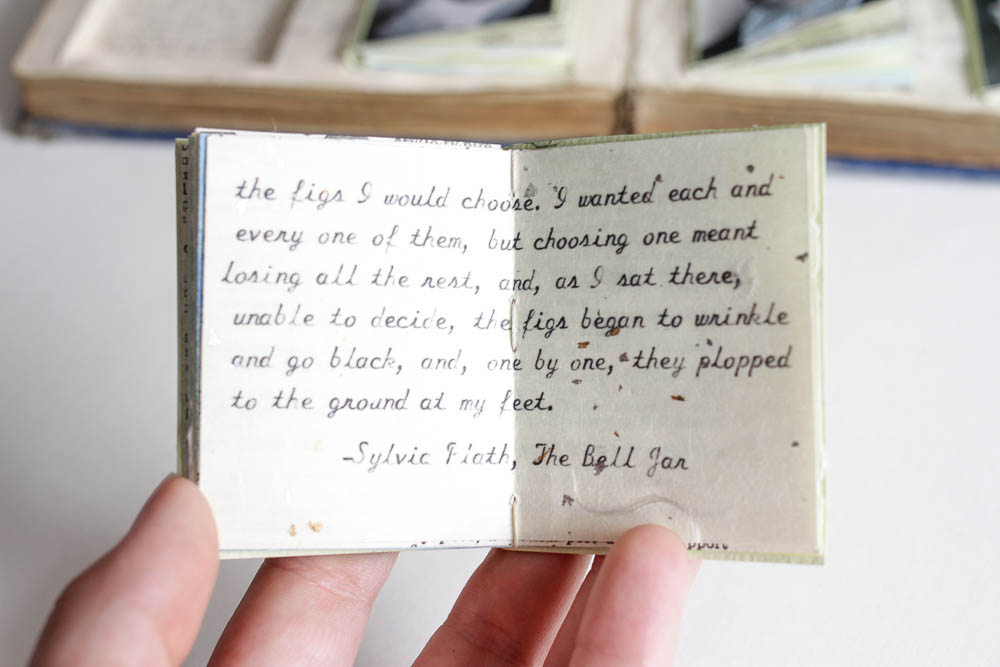 the figs I would choose. I wanted each and
every one of them, but choosing one meant
losing all the rest, and, as I sat there,
unable to decide, the figs began to wrinkle
and go black, and, one by one, they plopped
to the ground at my feet.
-Sylvia Plath, The Bell Jar